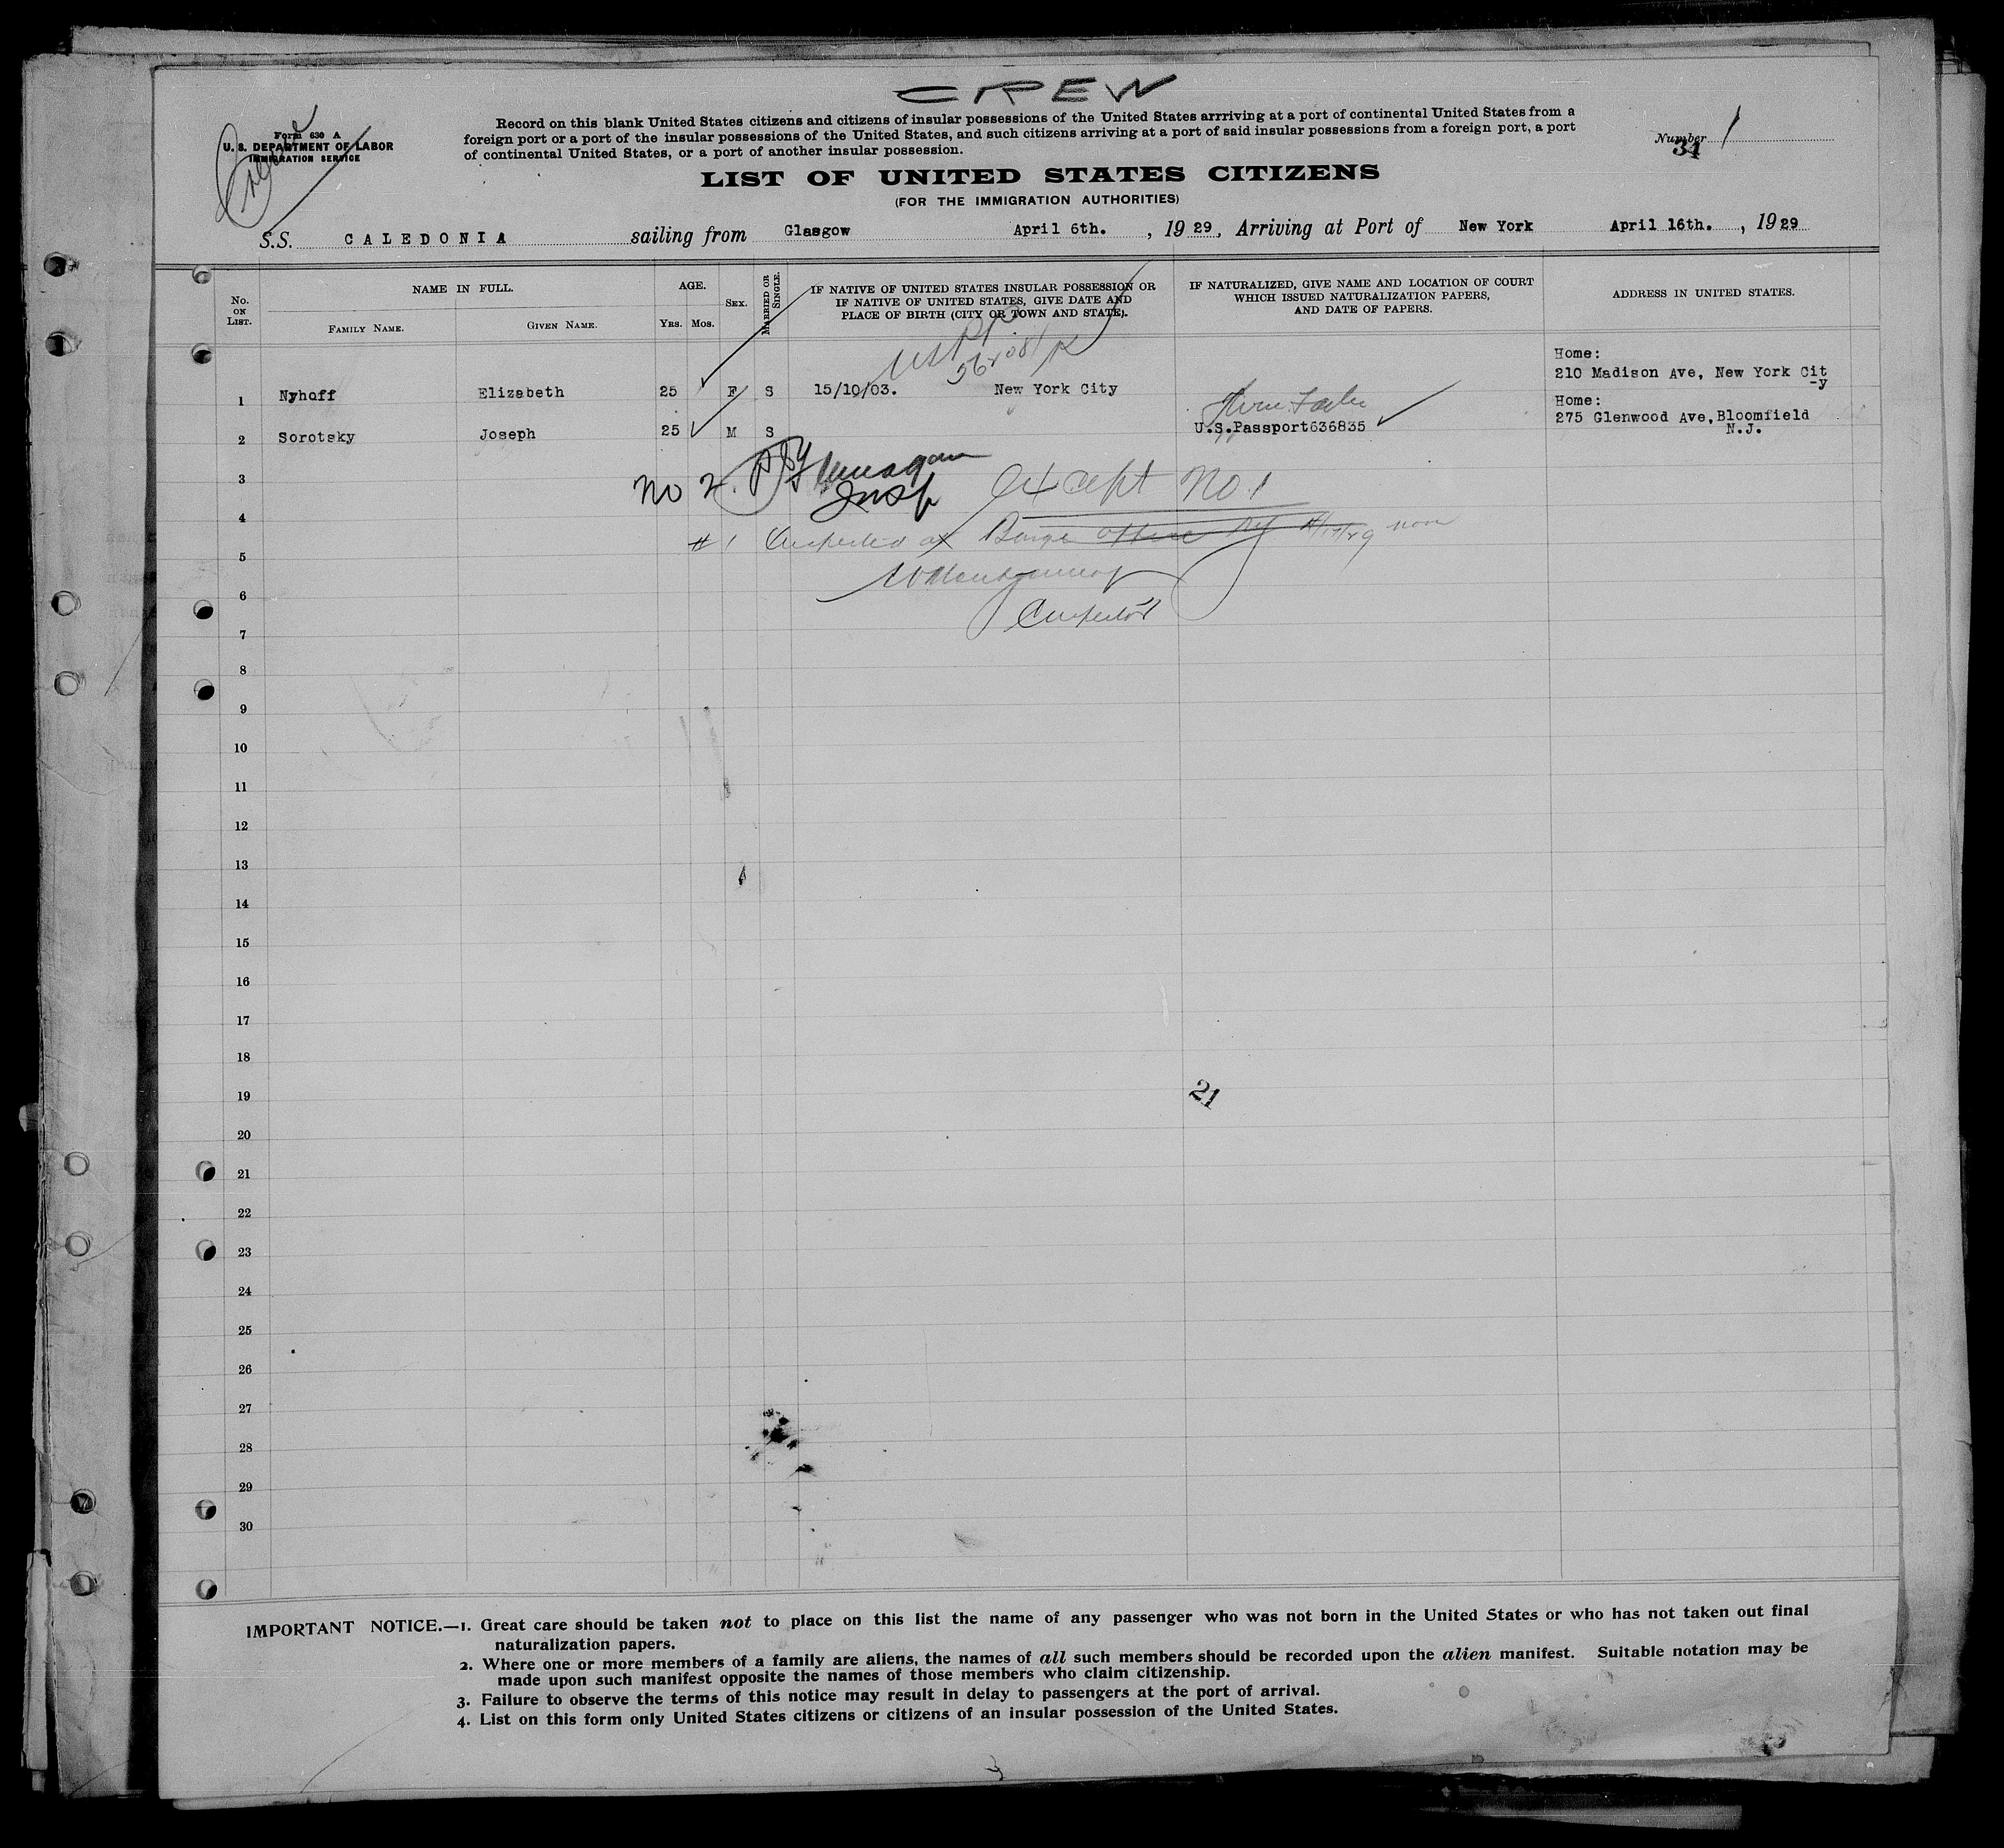 CREW
Form 630 A
U. S. DEPARTMENT OF LABOR
IMMIGRATION SERVICE
Record on this blank United States citizens and citizens of insular possessions of the United States arrriving at a port of continental United States from a
foreign port or a port of the insular possessions of the United States, and such citizens arriving at a port of said insular possessions from a foreign port, a port
of continental United States, or a port of another insular possession.
Number 1
34
LIST OF UNITED STATES CITIZENS
(FOR THE IMMIGRATION AUTHORITIES)
S.S. CALEDONIA sailing from Glasgow April 6th. , 1929, Arriving at Port of New York April 16th. , 1929
No. ON LIST.
NAME IN FULL.
FAMILY NAME.
GIVEN NAME.
AGE.
YRS. MOS.
SEX.
MARRIED OR SINGLE.
IF NATIVE OF UNITED STATES INSULAR POSSESSION OR
IF NATIVE OF UNITED STATES, GIVE DATE AND
PLACE OF BIRTH (CITY OR TOWN AND STATE).
IF NATURALIZED, GIVE NAME AND LOCATION OF COURT
WHICH ISSUED NATURALIZATION PAPERS,
AND DATE OF PAPERS.
ADDRESS IN UNITED STATES.
Home:
210 Madison Ave, New York Cit
-y
1 Nyhoff Elizabeth 25 F S 15/10/03. New York City
Home:
275 Glenwood Ave, Bloomfield
N.J.
2 Sorotsky Joseph 25 M S U.S.Passport636835
3
No 2.
Insp
except No. 1
4
# 1 Inspected at Barge Office
5
6
Inspector
7
8
9
10
11
12
13
14
15
16
17
18
19
21
20
21
22
23
24
25
26
27
28
29
30
IMPORTANT NOTICE.—1. Great care should be taken not to place on this list the name of any passenger who was not born in the United States or who has not taken out final
naturalization papers.
2. Where one or more members of a family are aliens, the names of all such members should be recorded upon the alien manifest. Suitable notation may be
made upon such manifest opposite the names of those members who claim citizenship.
3. Failure to observe the terms of this notice may result in delay to passengers at the port of arrival.
4. List on this form only United States citizens or citizens of an insular possession of the United States.